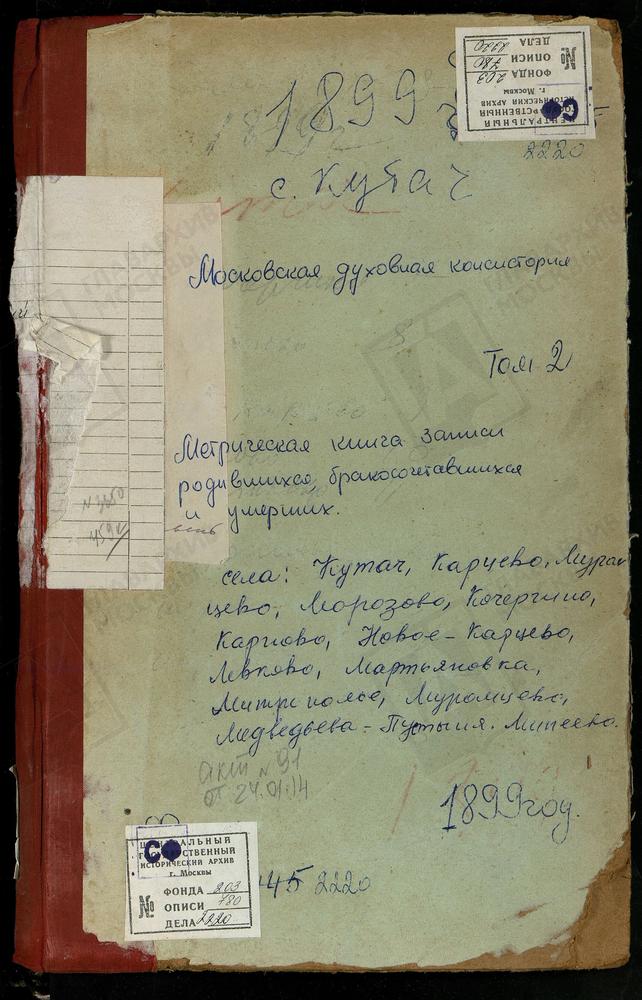 ЦЕНТРАЛЬНЫЙ
ГОСУДАРСТВЕННЫЙ
ИСТОРИЧЕСКИЙ АРХИВ
г. Москвы
ФОНДА 203
№ ОПИСИ 780
ДЕЛА 2220
1899
2220
с. Кутач
Московская духовная консистория
Том 2
Метрическая книга записи
родившихся, бракосочетавшихся
и умерших.
села: Кутач, Карцево,
цево, Морозово, Кочергино,
Карпово, Новое-Карцево,
Левково, Мартьяновка,
Муромцево,
Медведьева-Пустынь. Минеево.
акт № 91
от 24.01.14
1899 год.
45 2220
С
ЦЕНТРАЛЬНЫЙ
ГОСУДАРСТВЕННЫЙ
ИСТОРИЧЕСКИЙ АРХИВ
г. Москвы
ФОНДА 203
№ ОПИСИ 780
ДЕЛА 2220